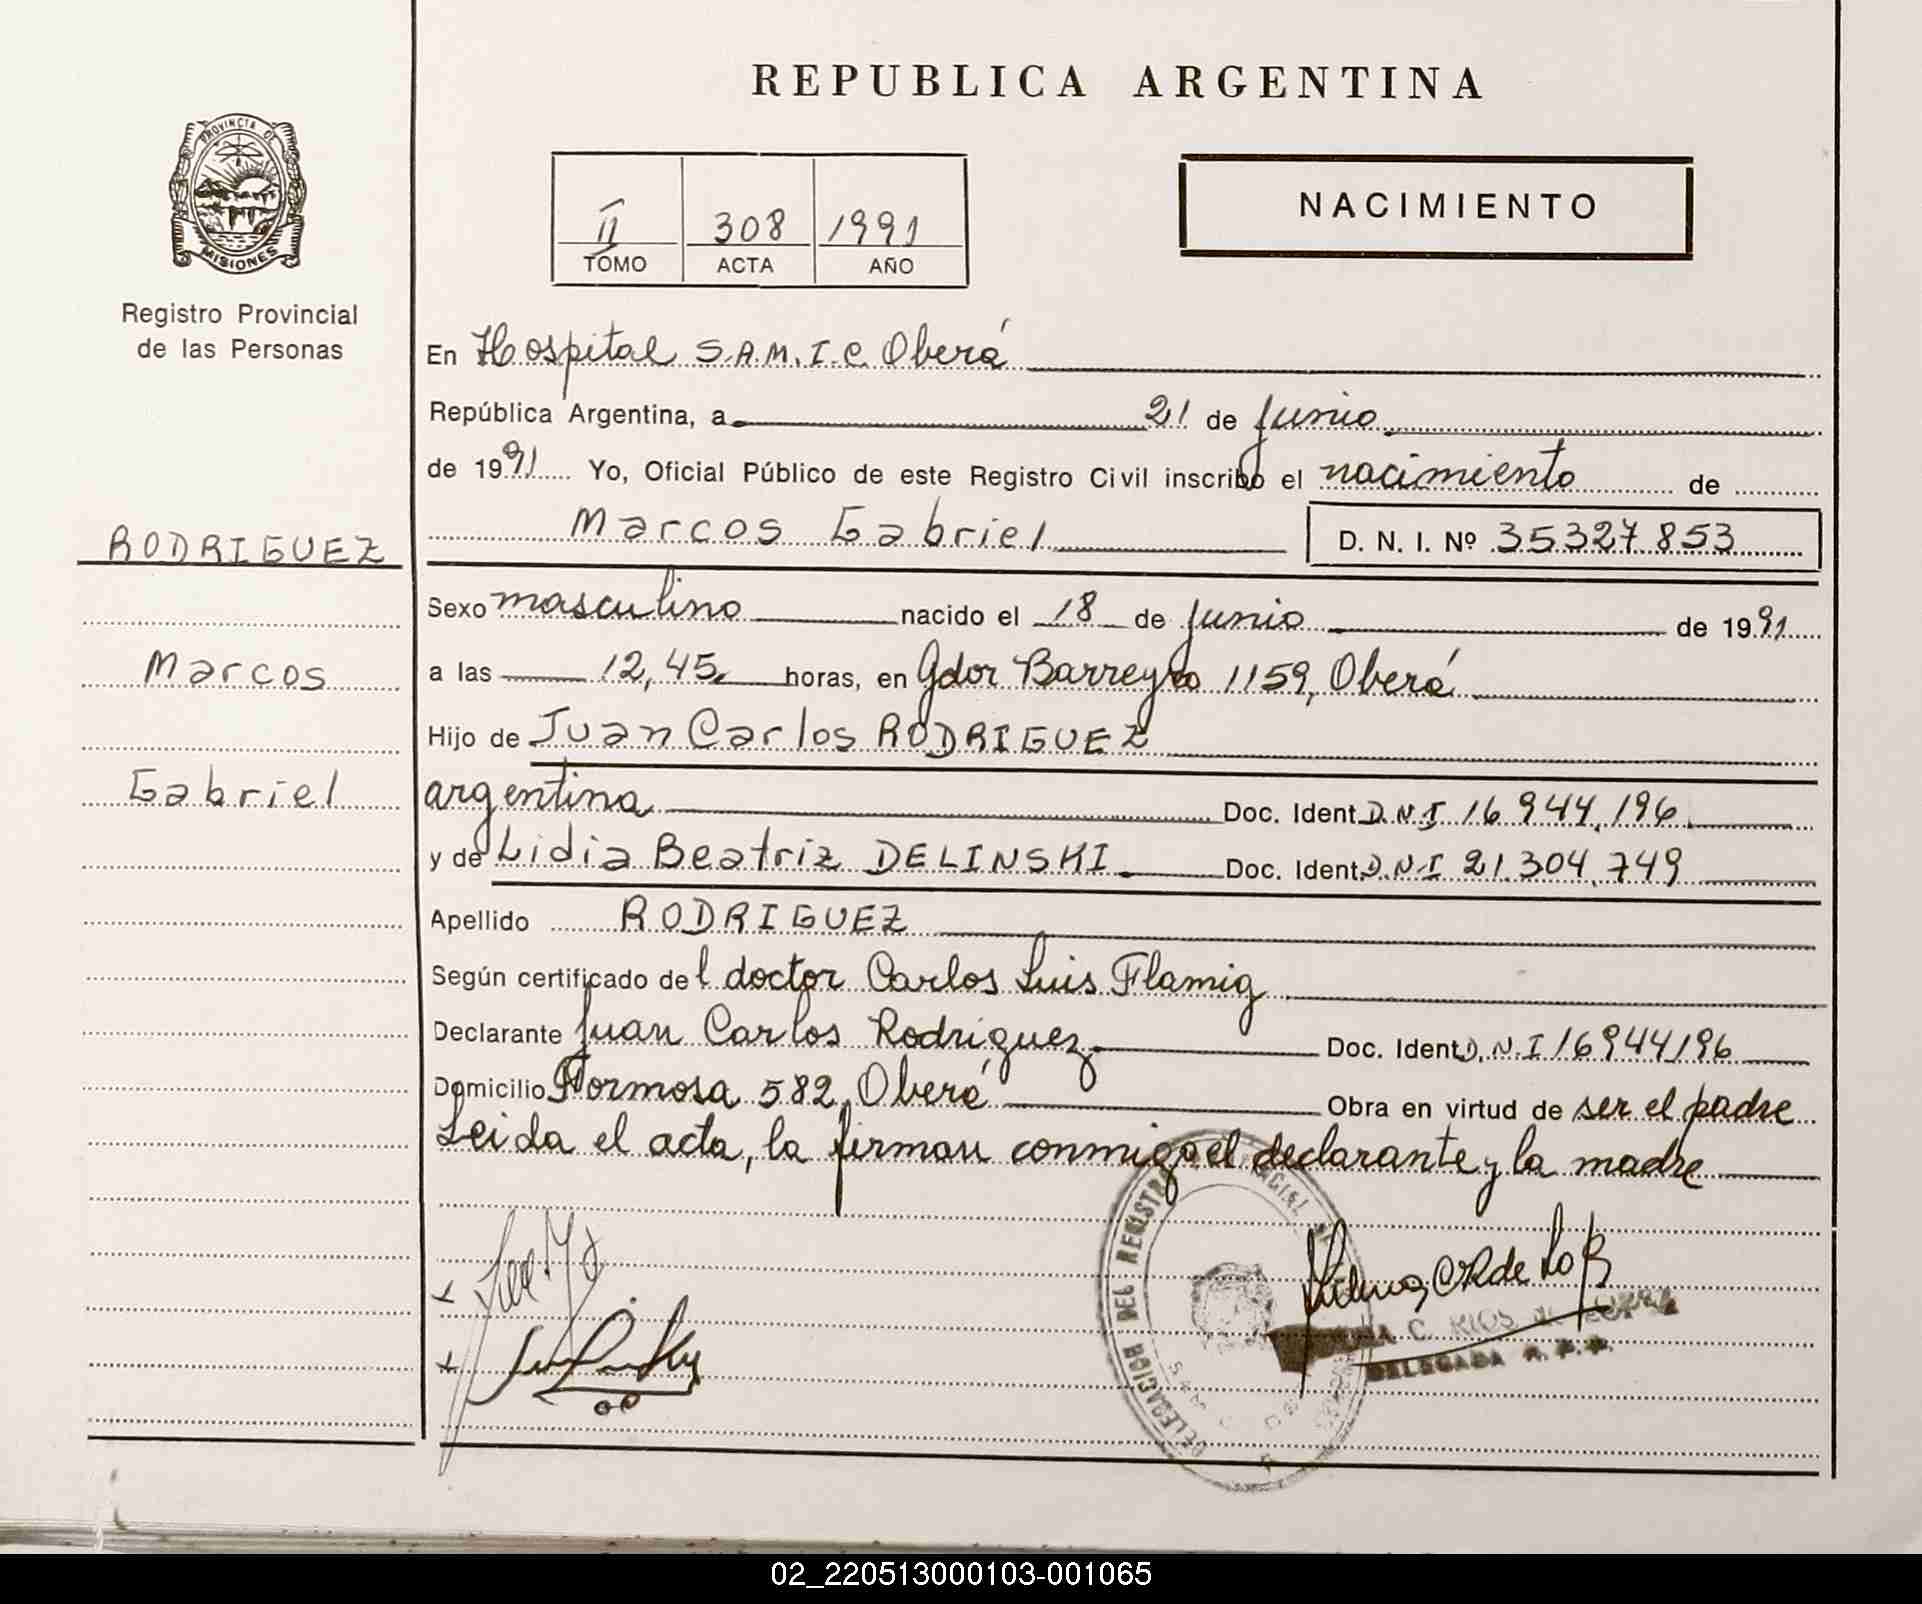 REPUBLICA ARGENTINA
PROVINCIA DE
MISIONES
Registro Provincial
de las Personas
II 308 1991
TOMO ACTA AÑO
NACIMIENTO
En Hospital S.A.M.I.C Oberá
República Argentina, a 21 de Junio
de 1991 Yo, Oficial Público de este Registro Civil inscribo el nacimiento de
Marcos Gabriel D. N. I. Nº 35327853
RODRIGUEZ
Marcos
Gabriel
Sexo masculino nacido el 18 de Junio de 1991
a las 12,45 horas, en Gdor Barreyro 1159, Oberá
Hijo de Juan Carlos RODRIGUEZ
argentina Doc. Ident. D.N.I 16 944.196
y de Lidia Beatriz DELINSKI Doc. Ident. D.N.I 21.304.749
Apellido RODRIGUEZ
Según certificado del doctor Carlos Luis Flamig
Declarante Juan Carlos Rodriguez Doc. Ident. D.N.I 16944196
Domicilio Formosa 582, Oberá Obra en virtud de ser el padre
Leida el acta, la firman conmigo el declarante y la madre
DELEGACION DEL REGISTRO
C. RIOS DE
DELEGADA R.P.P.
02_220513000103-001065